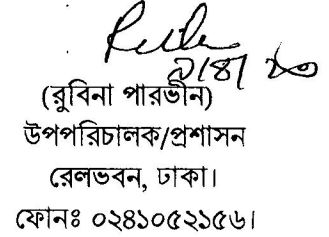 (রুবিনা পারভীন)
উপপরিচালক/প্রশাসন
রেলভবন, ঢাকা।
ফোনঃ ০২৪১০৫২১৫৬।